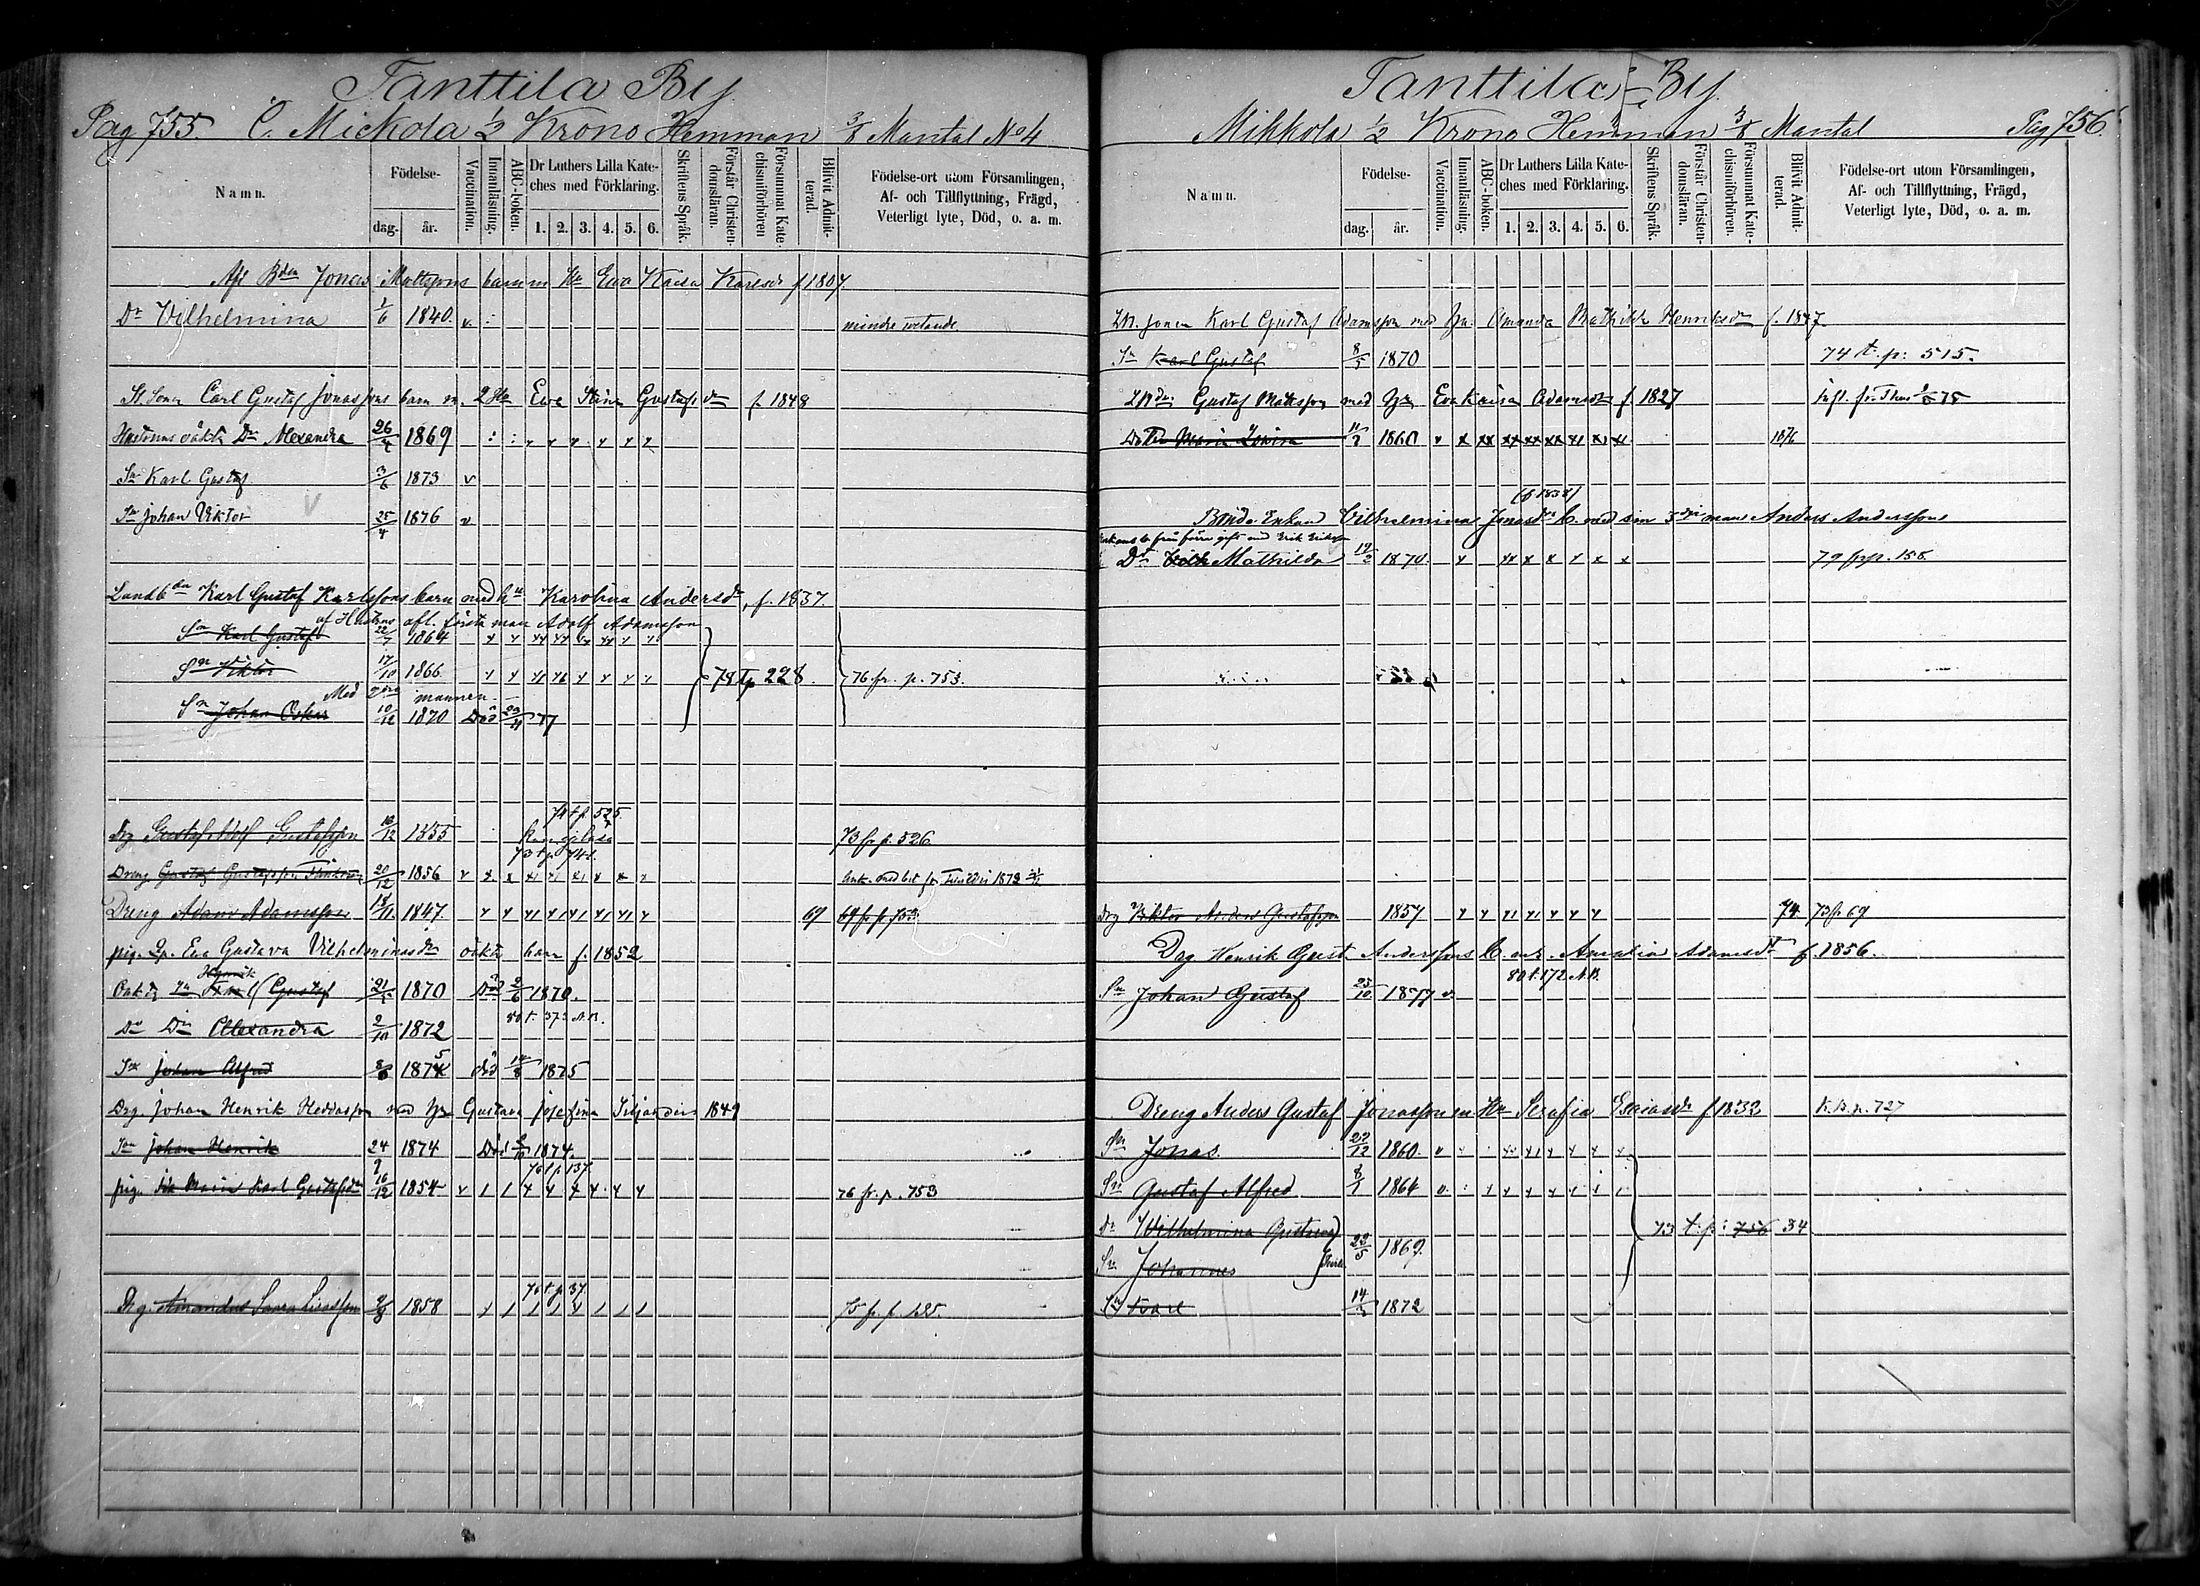 Tanttila By
Pag 755. C. Mickola 1/2 Krono Hemman 3/8 Mantal No 4
Namn.
Födelse-
dag.
år.
Vaccination.
Innanläsning.
ABC-boken.
Dr Luthers Lilla Kate-
ches med Förklaring.
1. 2. 3. 4. 5. 6.
Skriftens Språk.
Förstår Christen-
domsläran.
Försummat Kate-
chismiförhören
Blifvit Admit-
terad.
Födelse-ort utom Församlingen,
Af- och Tillflyttning, Frägd,
Veterligt lyte, Död, o. a. m.
Afl Bden Jonas Mattssons barn m Hu Ewa Kaisa Karlsdr f 1807
Dr Vilhelmina 1/6 1840. v. mindre vetande
St Sonen Carl Gustaf Jonassons barn m. 2 Hu Ewa Stina Gustafsdr f. 1848
Hustruns oäkta Dr Alexandra 26/4 1869
Sn Karl Gustaf 3/6 1873 v
Sn Johan Viktor 25/4 1876 v
Landbden Karl Gustaf Karlssons barn med hu Karolina Andersdr, f. 1837.
af Hustruns afl. första man Adolf Adamsson
Sn Karl Gustaf 22/7 1864
Sn Viktor 17/10 1866 78 tp 228. 76 fr. p. 753.
Med 2dra mannen
Sn Johan Oskar 10/12 1870 Död 23/11 77
74 t p. 525.
Drg Gustaf Adolf Gustafsson 10/12 1855 73 fr p. 526
73 t p 741.
Dreng Gustaf Gustafsson 20/12 1856 v
Dreng Adam Adamsson 18/11 1847. 69 69 fr p 753
pig. Ip. Eva Gustava Vilhelminasdr oäkta barn f. 1852
Henrik
Oäkta Sn Gustaf 21/5 1870 Död 2/6 1870.
80 t. 373 N.B.
Dr Dr Alexandra 2/10 1872
Sn Johan Alfred 1875 död 14/8 1875
Drg. Johan Henrik Heddasson med Hu Gustava Josefina 1849
Sn Johan Henrik 24 1874 Död 1874.
76 t p 137.
pig. Maria Karl Gustafsdr 10/12 1854 v 76 fr. p. 753
76 t. p 37.
Drg. Amandus 1858
Tanttila By.
Mikkola 1/2 Krono Hemman 3/8 Mantal Pag 756.
Namn.
Födelse-
dag.
år.
Vaccination.
Innanläsning.
ABC-boken.
Dr Luthers Lilla Kate-
ches med Förklaring.
1. 2. 3. 4. 5. 6.
Skriftens Språk.
Förstår Christen-
domsläran.
Försummat Kate-
chismiförhören.
Blifvit Admit-
terad.
Födelse-ort utom Församlingen,
Af- och Tillflyttning, Frägd,
Veterligt lyte, Död, o. a. m.
Karl Gustaf Adamsson med Hu. Amanda Mathilda Henriksdr f. 1847.
Sn Karl Gustaf 8/5 1870 74 t. p: 515.
Gustaf Mattsson med Hu Eva Kaisa Adamsdr f 1827
Maria Lovisa 1860 v 1876
(f 1838)
Bonde Enkan Vilhelmina Jonasdrs b. med sin 3dje man Anders Andersson
Dr Mathilda 19/2 1870. 79 fr p. 158.
Drg Viktor Anders Gustafsson 1857 74. 73 fr 69
Drg Henrik Gust Anderssons b. m h. Amalia Adamsdr f. 1856.
80 t. 172 N.B.
Sn Johan Gustaf 25/10 1877 v.
Dreng Anders Gustaf Jonasson m Hu Serafia Esaiasdr f 1832 K.B. p. 727
Sn Jonas 22/12 1860. v
Sn Gustaf Alfred 8/1 1864 v.
Dr Wilhelmina Gustava 22/5 1869. 73 t. p: 756 34
Sn Johannes
Sn Karl 14/3 1872